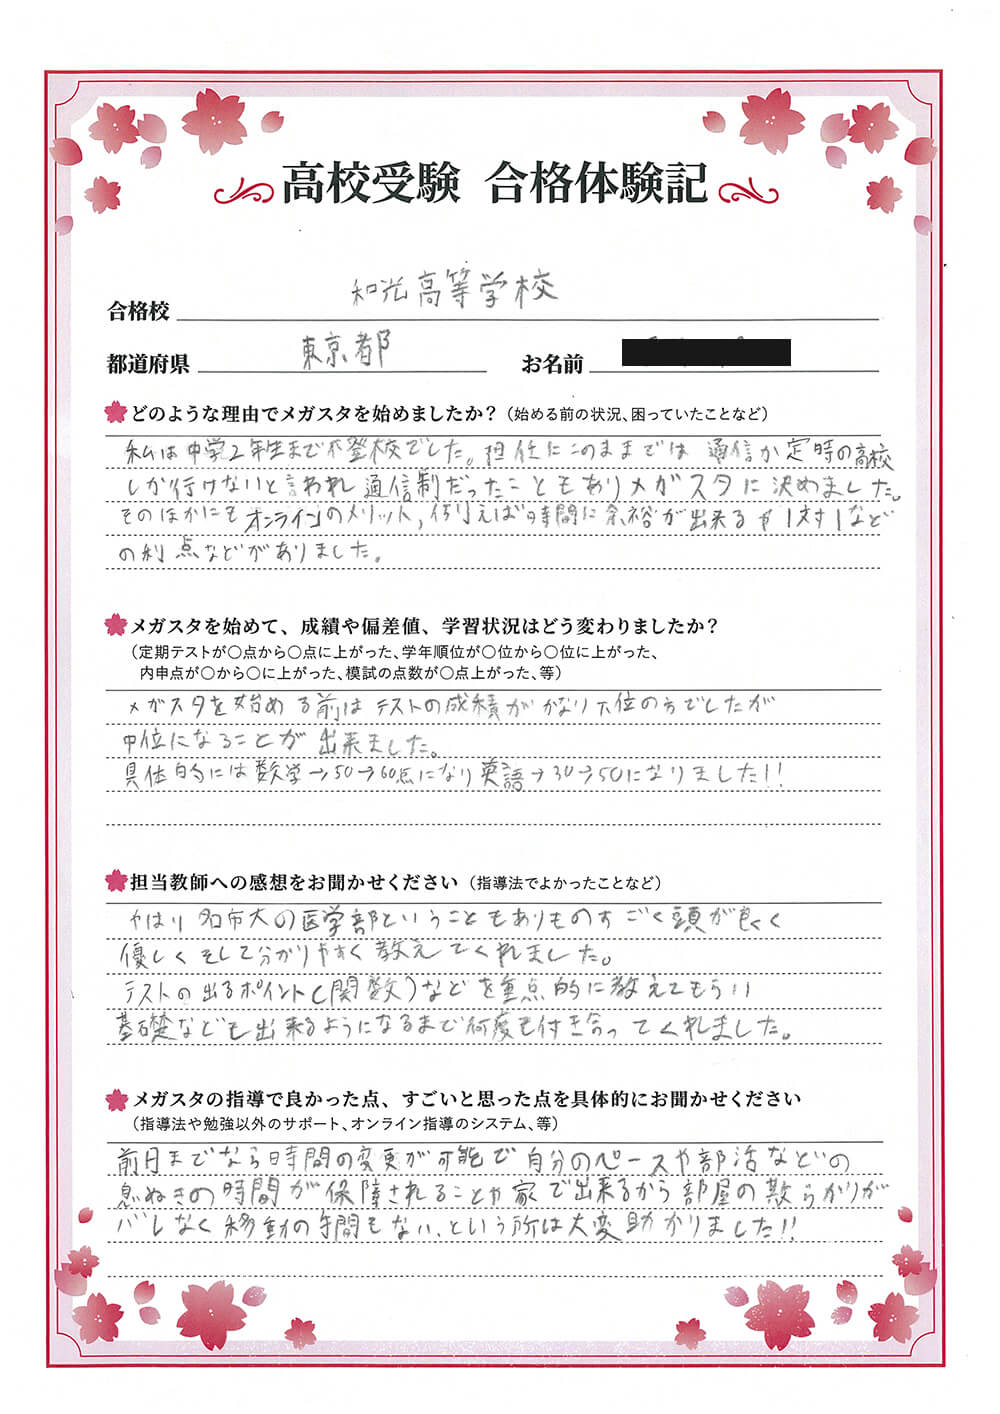 高校受験 合格体験記
合格校 和光高等学校
都道府県 東京都 お名前
どのような理由でメガスタを始めましたか?(始める前の状況、困っていたことなど)
私は中学2年生まで不登校でした。担任にこのままでは通信か定時の高校
しか行けないと言われ通信制だったこともありメガスタに決めました。
そのほかにもオンラインのメリット,例えば時間に余裕が出来るや1対1など
の利点などがありました。
メガスタを始めて、成績や偏差値、学習状況はどう変わりましたか?
(定期テストが〇点から〇点に上がった、学年順位が〇位から〇位に上がった、
内申点が〇から〇に上がった、模試の点数が〇点上がった、等)
メガスタを始める前はテストの成積がかなり下位の方でしたが
中位になることが出来ました。
具体的には数学→50→60点になり英語→30→50になりました!!
担当教師への感想をお聞かせください(指導法でよかったことなど)
やはり名市大の医学部ということもありものすごく頭が良く
優しくそして分かりやすく教えてくれました。
テストの出るポイント(関数)などを重点的に教えてもらい
基礎なども出来るようになるまで何度も付き合ってくれました。
メガスタの指導で良かった点、すごいと思った点を具体的にお聞かせください
(指導法や勉強以外のサポート、オンライン指導のシステム、等)
前日までなら時間の変更が可能で自分のペースや部活などの
息ぬきの時間が保障されることや家で出来るから部屋の散らかりが
バレなく移動の時間もない、という所は大変助かりました!!